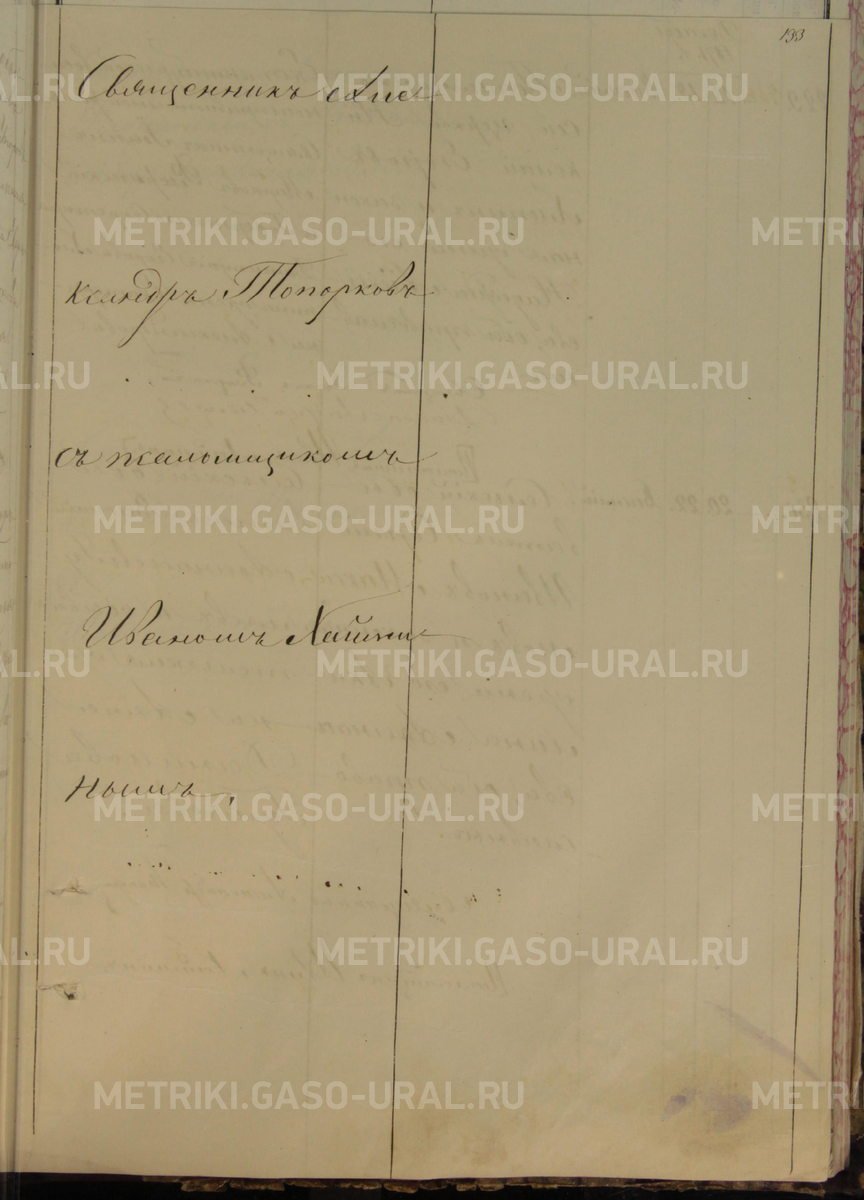 133
Священникъ Але-
ксандръ Топорковъ
съ псаломщикомъ
Иваномъ
нымъ.
METRIKI.GASO-URAL.RU